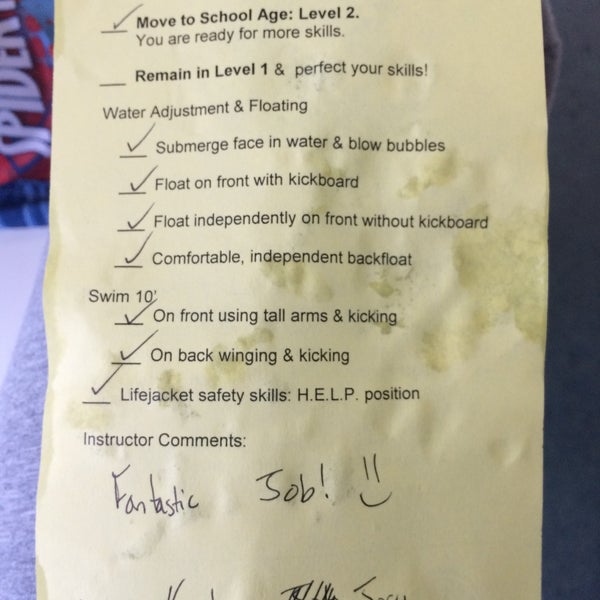 Move to School Age: Level 2.
You are ready for more skills.
Remain in Level 1 & perfect your skills!
Water Adjustment & Floating
Submerge face in water & blow bubbles
Float on front with kickboard
Float independently on front without kickboard
Comfortable, independent backfloat
Swim 10'
On front using tall arms & kicking
On back winging & kicking
Lifejacket safety skills: H.E.L.P. position
Instructor Comments:
Fantastic Job!